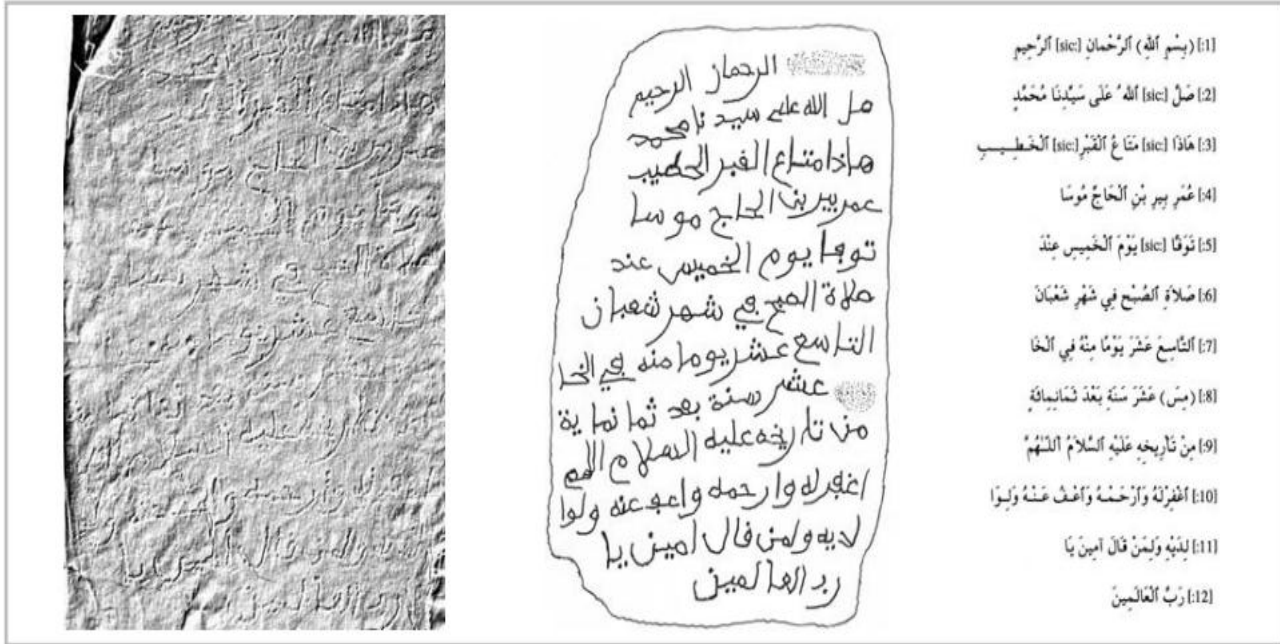 الرحمان الرحيم
صل الله على سيدنا محمد
هاذا متاع القبر الخطيب
عمر بير بن الحاج موسا
توفا يوم الخميس عند
صلاة الصبح في شهر شعبان
التاسع عشر يوما منه في الخا
عشر سنة بعد ثمانماية
من تاريخه عليه السلام اللهم
اغفر له وارحمه واعف عنه ولوا
لديه ولمن قال امين يا
رب العالمين
[1:] (بِسْمِ ٱللهِ) ٱلرَّحْمانِ [sic:] ٱلرَّحِيمِ
[2:] صَلُ [sic:] ٱللهُ عَلَى سَيِّدِنَا مُحَمَّدٍ
[3:] هَاذَا [sic:] مَتَاعُ ٱلْقَبْرِ [sic:] ٱلْخَطِيبِ
[4:] عُمَرِ بِيرِ بْنِ ٱلْحَاجِّ مُوسَا
[5:] تَوَفَّا [sic:] يَوْمَ ٱلْخَمِيسِ عِنْدَ
[6:] صَلاَةِ ٱلصُّبْحِ فِي شَهْرِ شَعْبَانَ
[7:] ٱلتَّاسِعَ عَشَرَ يَوْمًا مِنْهُ فِي ٱلْخَا
[8:] (مِسَ) عَشَرَ سَنَةٍ بَعْدَ ثَمَانِمِائَةٍ
[9:] مِنْ تَأْرِيخِهِ عَلَيْهِ ٱلسَّلاَمُ ٱللَّهُمَّ
[10:] ٱغْفِرْلَهُ وَٱرْحَمْهُ وَٱعْفُ عَنْهُ وَلِوَا
[11:] لِدَيْهِ وَلِمَنْ قَالَ آمِينَ يَا
[12:] رَبَّ ٱلْعَالَمِينَ